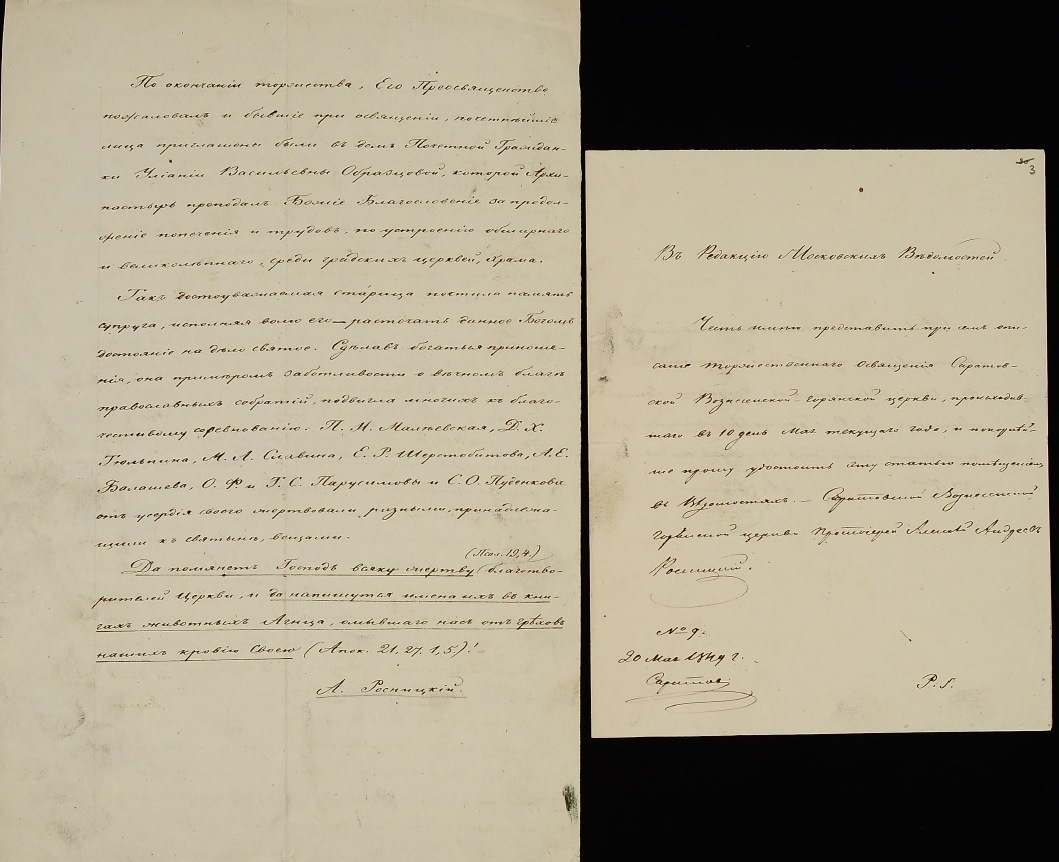 По окончаніи торжества, Его Преосвященство
пожаловалъ и бывшіе при освященіи, почетнѣйшіе
лица приглашены были въ домъ Почетной Граждан-
ки Уліаніи Васильевны Образцовой, которой Архи-
пастырь преподалъ Божіе Благословеніе за продол-
женіе попеченія и трудовъ, по устроенію обширнаго
и великолѣпнаго, среди градскихъ церквей, Храма.
Такъ достоуважаемая старица почтила память
супруга, исполняя волю его — расточать данное Богомъ
достояніе на дѣло святое. Сдѣлавъ богатыя приноше-
нія, она примѣромъ заботливости о вѣчномъ благѣ
православныхъ собратій, подвигла многихъ къ благо-
честивому соревнованію. П. М. Мальевская, Д. Х.
Гюльпина, М. Л. Славина, Е. Р. Шерстобитова, А. Е.
Балашева, О. Ф. и Г. С. Парусимовы и С. О. Пубенкова
отъ усердія своего жертвовали разными, принадлежа-
щими къ святынѣ, вещами.
(Псал. 19,4.)
Да помянетъ Господь всяку жертву благотво-
рителей Церкви, и да напишутся имена ихъ въ кни-
гахъ животныхъ Агнца, омывшаго насъ отъ грѣховъ
нашихъ кровію Своею (Апок. 21. 27. 1,5)!
А. Росницкій.
3
Въ Редакцію Московскихъ Вѣдомостей.
Честь имѣю представить при семъ опи-
саніе торжественнаго освященія Саратов-
ской Вознесенской-горянской церкви, происходив-
шаго въ 10 день Мая текущаго года, и покорнѣй-
ше прошу удостоить эту статью помѣщенія
въ Вѣдомостяхъ. — Саратовской Вознесенской
горянской церкви Протоіерей Алексѣй Андреевъ
Росницкій.
№ 9.
20 Мая 1849 г.
Саратовъ
P. S.